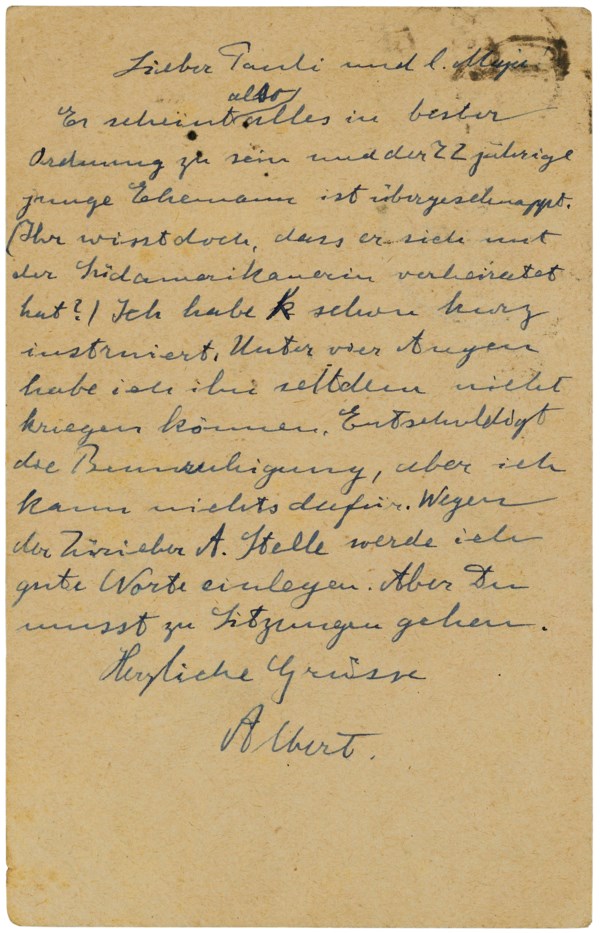 Lieber Pauli und l. Maja
also
Es scheint alles in bester
Ordnung zu sein und der 22 jährige
junge Ehemann ist übergeschnappt.
(Ihr wisst doch, dass er sich mit
der Südamerikanerin verheiratet
hat?) Ich habe K schon kurz
instruiert. Unter vier Augen
habe ich ihn seitdem nicht
kriegen können. Entschuldigt
die Beunruhigung, aber ich
kann nichts dafür. Wegen
der Züricher A. Stelle werde ich
gute Worte einlegen. Aber Du
musst zu Sitzungen gehen.
Herzliche Grüsse
Albert.